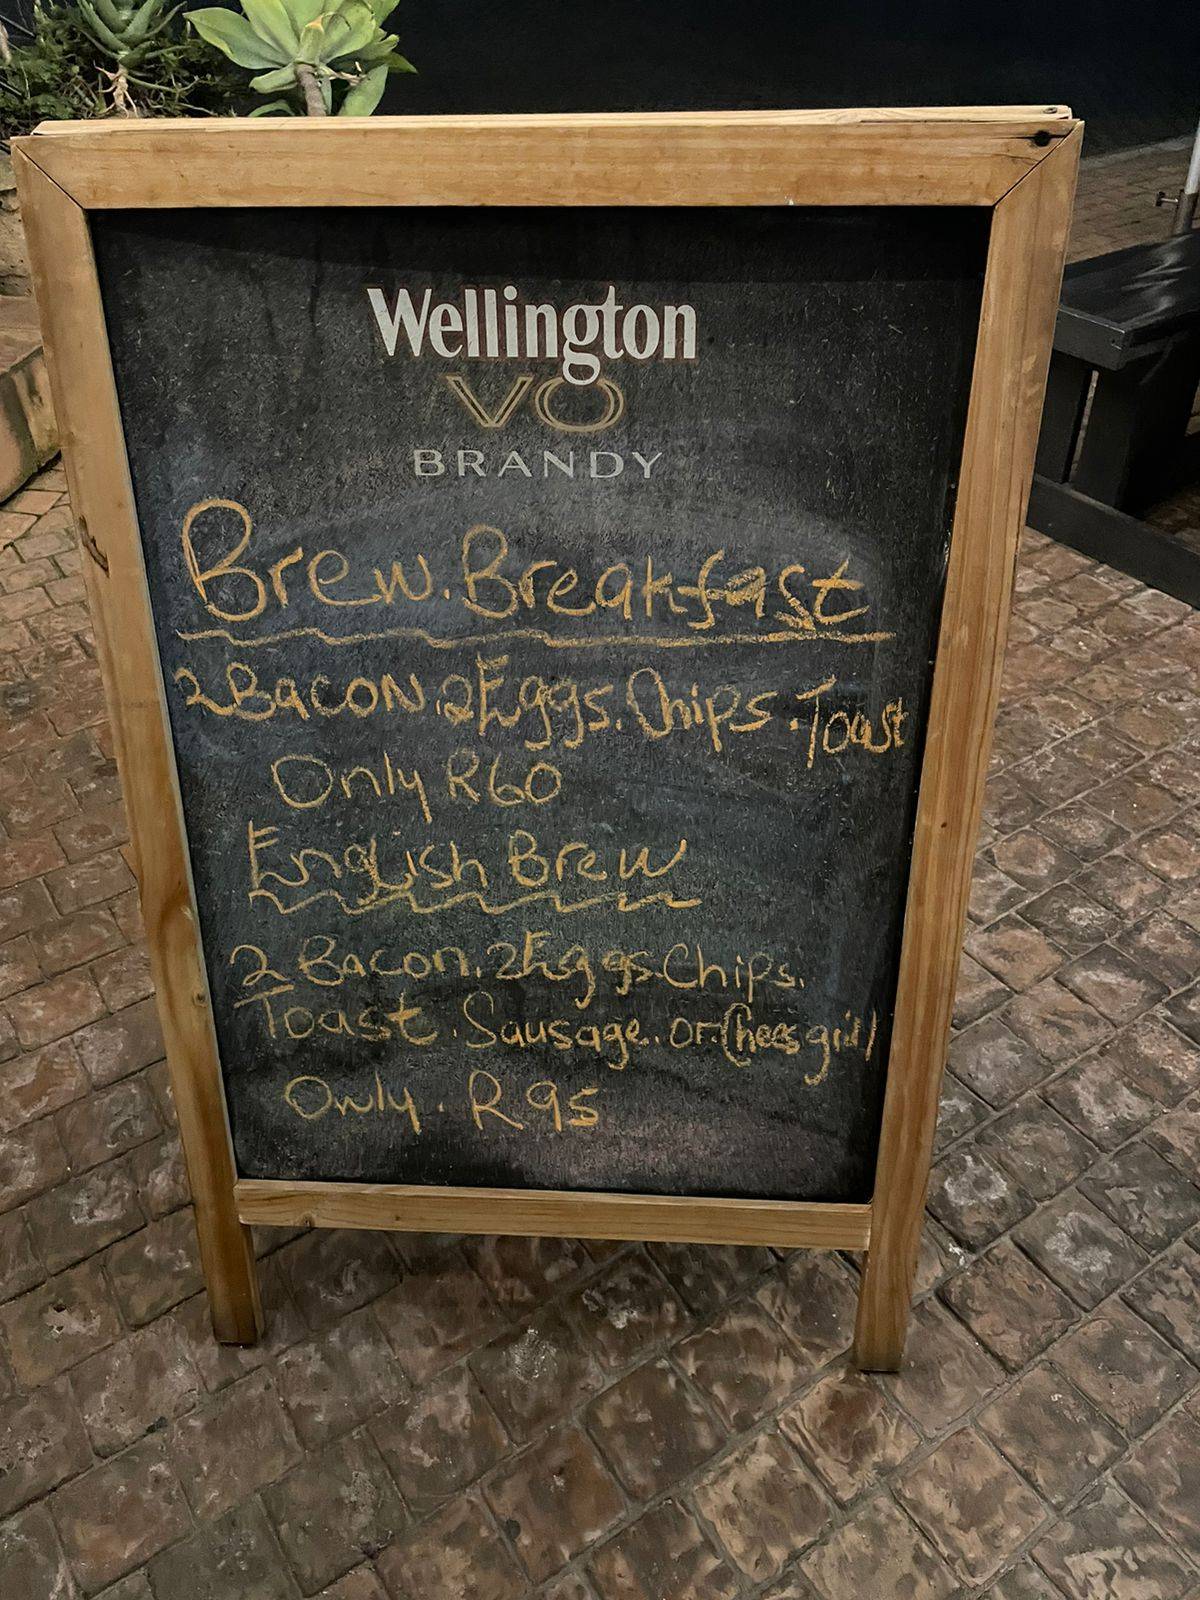 Wellington
VO
BRANDY
Brew. Breakfast
2 Bacon. 2 Eggs. Chips. Toast
Only R60
English Brew
2 Bacon. 2 Eggs. Chips.
Toast. Sausage. or. Cheesgirll
Only. R95